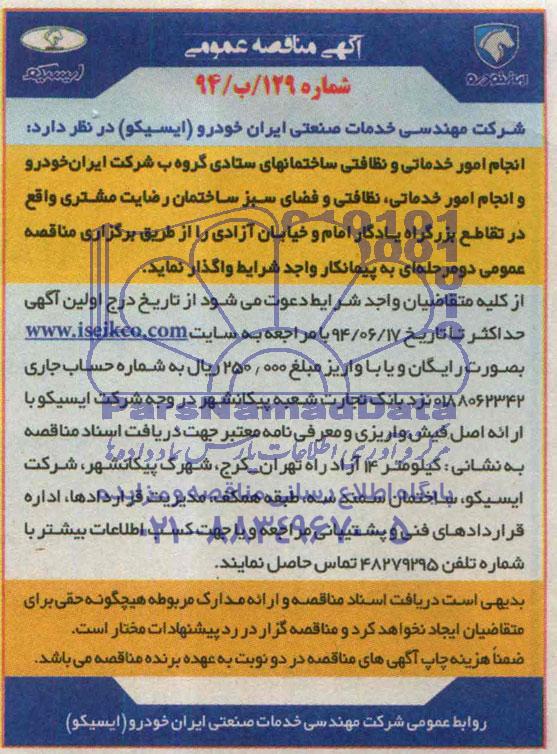 آگهی مناقصه عمومی
شماره ۱۲۹/ب/۹۴
ایران خودرو
ایسیکو
شرکت مهندسی خدمات صنعتی ایران خودرو (ایسیکو) در نظر دارد:
انجام امور خدماتی و نظافتی ساختمانهای ستادی گروه ب شرکت ایران‌خودرو
و انجام امور خدماتی، نظافتی و فضای سبز ساختمان رضایت مشتری واقع
در تقاطع بزرگراه یادگار امام و خیابان آزادی را از طریق برگزاری مناقصه
عمومی دومرحله‌ای به پیمانکار واجد شرایط واگذار نماید.
از کلیه متقاضیان واجد شرایط دعوت می شود از تاریخ درج اولین آگهی
حداکثر تا تاریخ ۹۴/۰۶/۱۷ با مراجعه به سایت www.iseikco.com
بصورت رایگان و یا با واریز مبلغ ۲۵۰,۰۰۰ ریال به شماره حساب جاری
۰۱۸۸۰۶۲۳۴۲ نزد بانک تجارت شعبه پیکانشهر در وجه شرکت ایسیکو با
ارائه اصل فیش واریزی و معرفی نامه معتبر جهت دریافت اسناد مناقصه
به نشانی: کیلومتر ۱۴ آزاد راه تهران_کرج، شهرک پیکانشهر، شرکت
ایسیکو، ساختمان سمند سه، طبقه همکف، مدیریت قراردادها، اداره
قراردادهای فنی و پشتیبانی مراجعه و یا جهت کسب اطلاعات بیشتر با
شماره تلفن ۴۸۲۷۹۲۹۵ تماس حاصل نمایند.
بدیهی است دریافت اسناد مناقصه و ارائه مدارک مربوطه هیچگونه حقی برای
متقاضیان ایجاد نخواهد کرد و مناقصه گزار در رد پیشنهادات مختار است.
ضمناً هزینه چاپ آگهی های مناقصه در دو نوبت به عهده برنده مناقصه می باشد.
روابط عمومی شرکت مهندسی خدمات صنعتی ایران خودرو (ایسیکو)
ParsNamadData
پایگاه اطلاع رسانی مناقصه و مزایده
۰۲۱-۸۸۳۴۹۶۷۰-۵